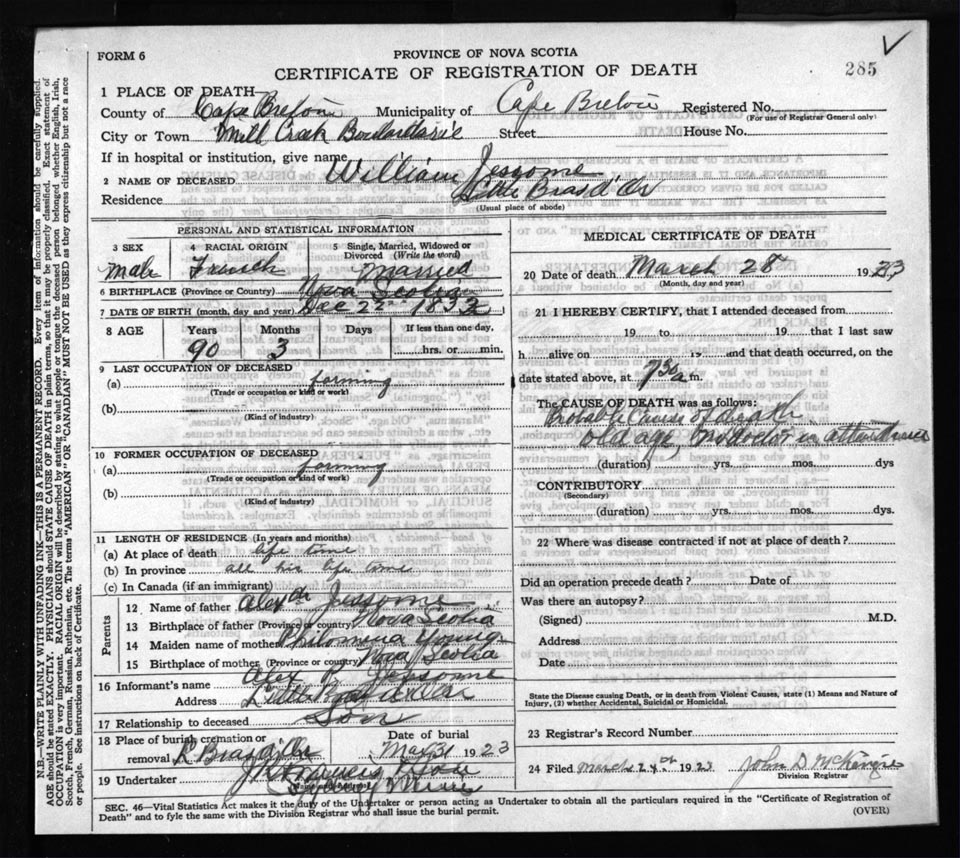 FORM 6
PROVINCE OF NOVA SCOTIA
CERTIFICATE OF REGISTRATION OF DEATH
285
1 PLACE OF DEATH—
County of Cape Breton Municipality of Cape Breton Registered No.
(For use of Registrar General only)
City or Town Mill Creek Boulardarie Street House No.
If in hospital or institution, give name
2 NAME OF DECEASED William Jessome
Residence Little Bras d'Or
(Usual place of abode)
PERSONAL AND STATISTICAL INFORMATION
3 SEX
male
4 RACIAL ORIGIN
French
5 Single, Married, Widowed or Divorced (Write the word)
Married
6 BIRTHPLACE (Province or Country) Nova Scotia
7 DATE OF BIRTH (month, day and year) Dec 2nd 1832
8 AGE Years Months Days If less than one day,
90 3 hrs. or min.
9 LAST OCCUPATION OF DECEASED
(a) farming
(Trade or occupation or kind of work)
(b)
(Kind of industry)
10 FORMER OCCUPATION OF DECEASED
(a) farming
(Trade or occupation or kind of work)
(b)
(Kind of industry)
11 LENGTH OF RESIDENCE (In years and months)
(a) At place of death life time
(b) In province all his life time
(c) In Canada (if an immigrant)
Parents
12 Name of father Alexdr Jessome
13 Birthplace of father (Province or country) Nova Scotia
14 Maiden name of mother Philomena Young
15 Birthplace of mother (Province or country) Nova Scotia
16 Informant's name Alex Jessome
Address Little Bras d'Or
17 Relationship to deceased Son
18 Place of burial cremation or removal L Bras d'Or
Date of burial
Mar 31 1923
19 Undertaker Son
Sydney Mines
MEDICAL CERTIFICATE OF DEATH
20 Date of death March 28 1923
(Month, day and year)
21 I HEREBY CERTIFY, that I attended deceased from
19 to 19 that I last saw
h alive on 19 and that death occurred, on the
date stated above, at 7 30 a m.
The CAUSE OF DEATH was as follows:
Probable Cause of death
old age, no doctor in attendance
(duration) yrs. mos. dys
CONTRIBUTORY
(Secondary)
(duration) yrs. mos. dys.
22 Where was disease contracted if not at place of death?
Did an operation precede death? Date of
Was there an autopsy?
(Signed) M.D.
Address
Date
State the Disease causing Death, or in death from Violent Causes, state (1) Means and Nature of
Injury, (2) whether Accidental, Suicidal or Homicidal.
23 Registrar's Record Number
24 Filed March 24th 1923 John D McKenzie
Division Registrar
SEC. 46—Vital Statistics Act makes it the duty of the Undertaker or person acting as Undertaker to obtain all the particulars required in the "Certificate of Registration of
Death" and to fyle the same with the Division Registrar who shall issue the burial permit.
(OVER)
N.B.—WRITE PLAINLY WITH UNFADING INK—THIS IS A PERMANENT RECORD. Every item of information should be carefully supplied.
AGE should be stated EXACTLY. PHYSICIANS should STATE CAUSE OF DEATH in plain terms, so that it may be properly classified. Exact statement of
OCCUPATION is very important. RACIAL ORIGIN will be described by stating to what people or tongue the deceased person belonged, whether English, Irish,
Scotch, French, German, Russian, Ruthenian, etc. The terms "AMERICAN" OR "CANADIAN" MUST NOT BE USED as they express citizenship but not a race
or people. See instructions on back of Certificate.